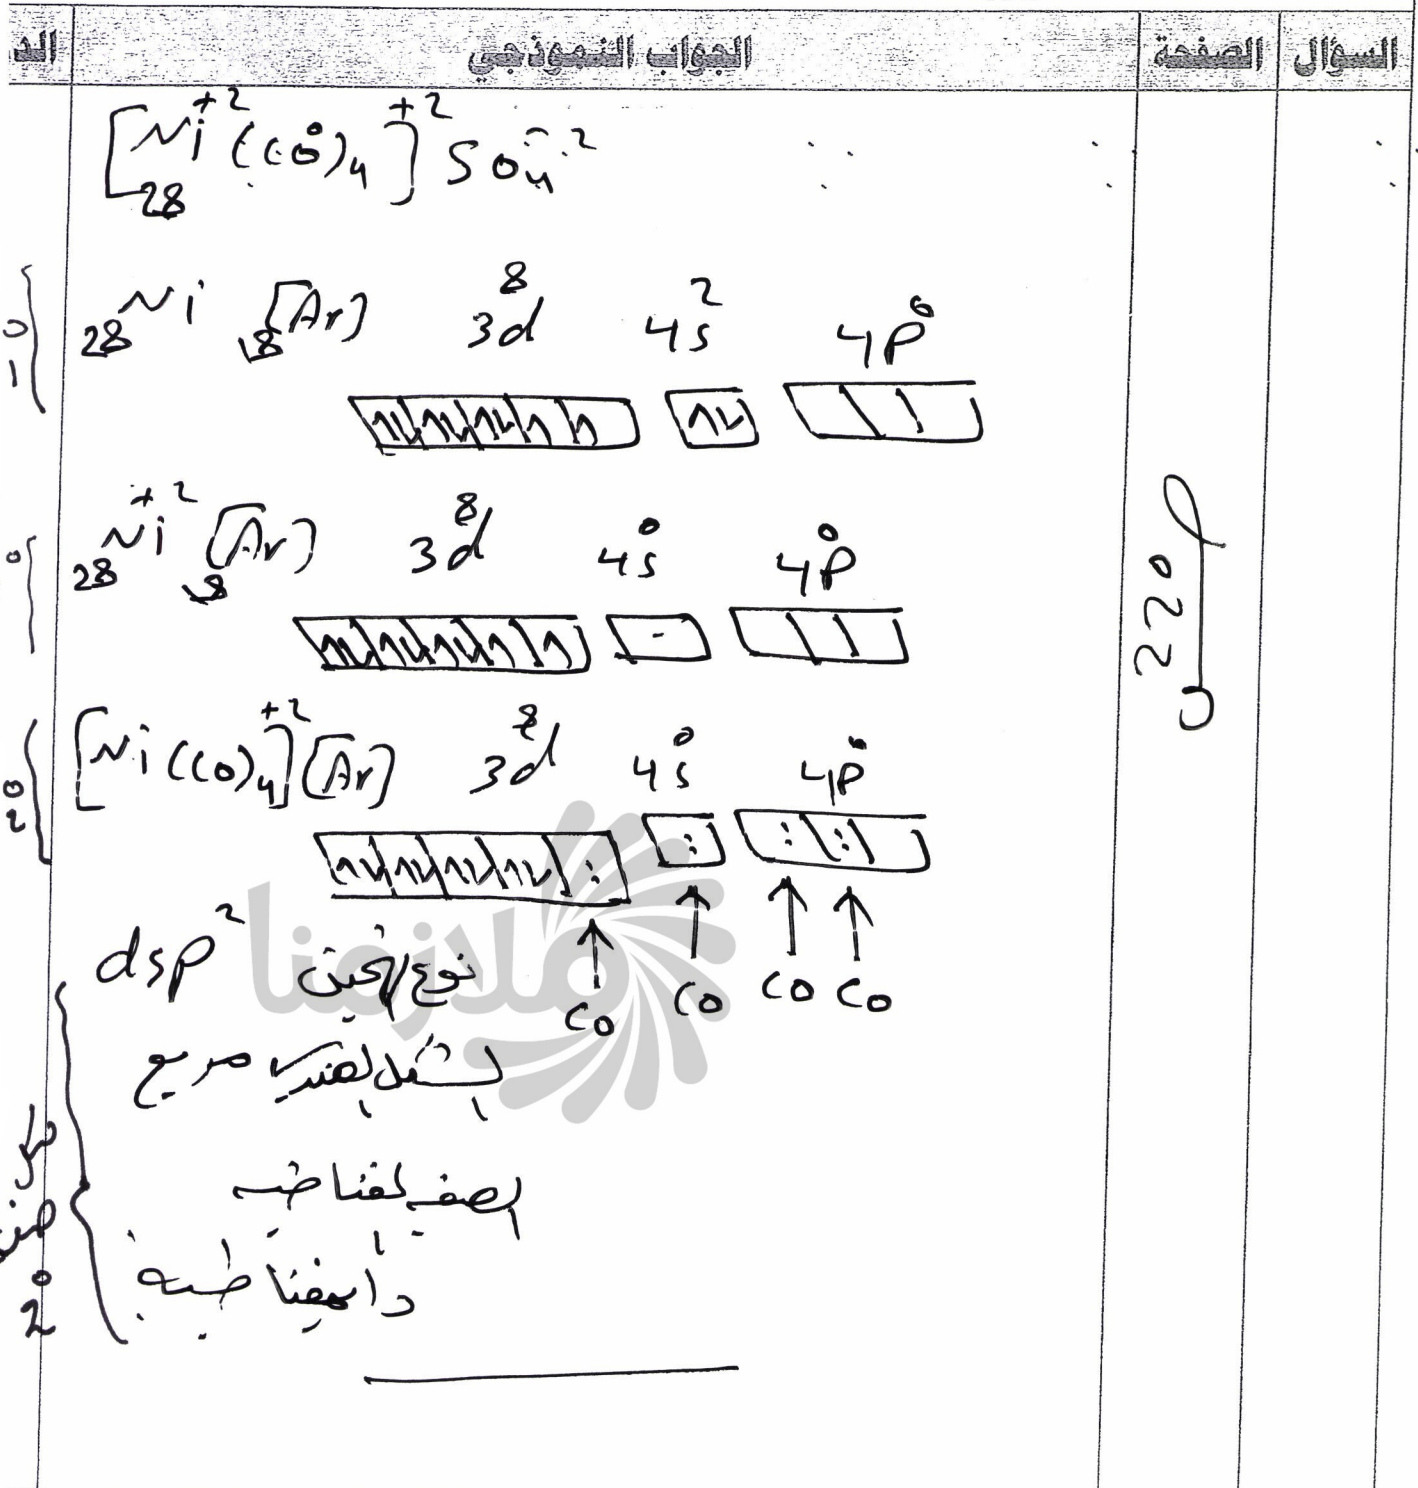 السؤال الصفحة الجواب النموذجي الد
[Ni⁺² (CO⁰)₄]⁺² SO₄⁻²
28
₂₈Ni ₁₈[Ar] 3d⁸ 4s² 4p⁰
₂₈Ni⁺² ₁₈[Ar] 3d⁸ 4s⁰ 4p⁰
220
[Ni(CO)₄]⁺² [Ar] 3d⁸ 4s⁰ 4p⁰
CO CO CO CO
ملازمنا
نوع التهجين dsp²
الشكل الهندسي مربع
الصفة المغناطيسية
دايامغناطيسية
2